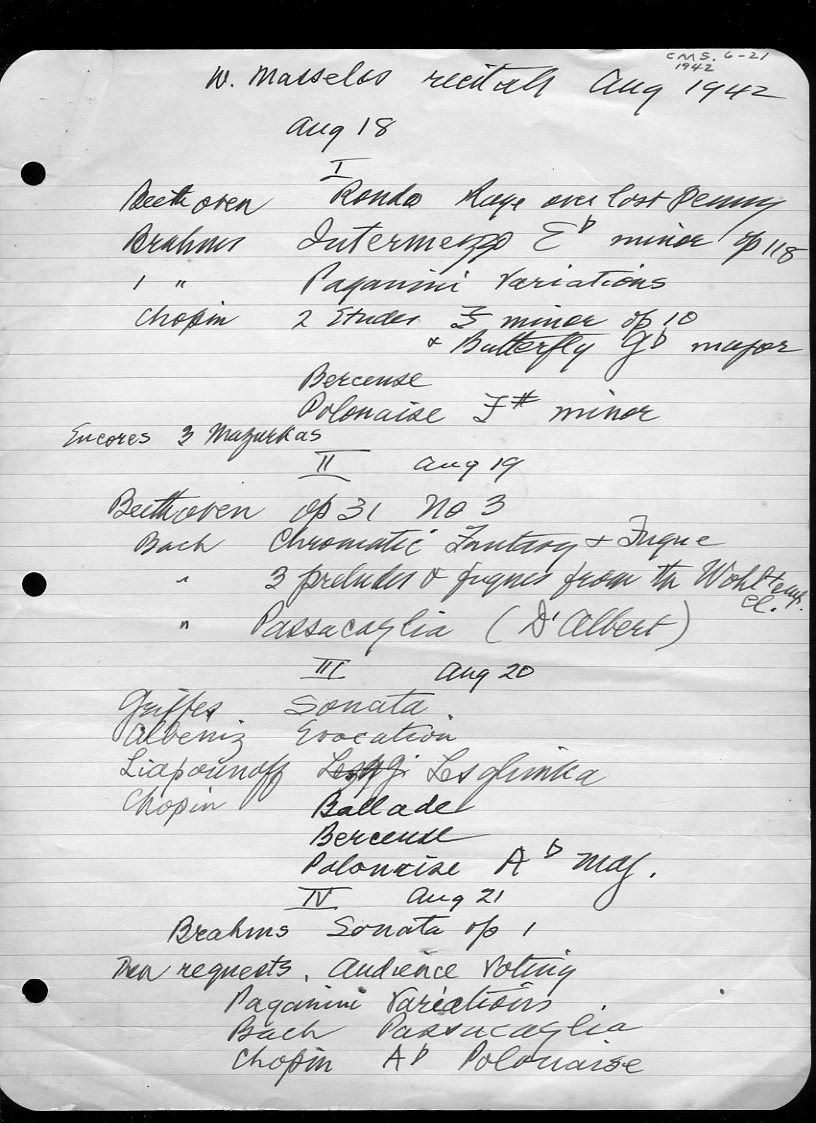 CMS. 6-21
1942
W. Masselos recitals Aug 1942
Aug 18
I
Beethoven Rondo Rage over lost Penny
Brahms Intermezzo E♭ minor op 118
1 " Paganini Variations
Chopin 2 Etudes F minor op 10
& Butterfly G♭ major
Berceuse
Polonaise F# minor
Encores 3 Mazurkas
II Aug 19
Beethoven op 31 No 3
Bach Chromatic Fantasy & Fugue
" 3 preludes & fugues from the Wohltemp.
cl.
" Passacaglia (D'Albert)
III Aug 20
Griffes Sonata
Albeniz Evocation
Liapounoff Lesghinka
Chopin Ballade
Berceuse
Polonaise A♭ maj.
IV Aug 21
Brahms Sonata op 1
Then requests. Audience Voting
Paganini Variations
Bach Passacaglia
Chopin A♭ Polonaise